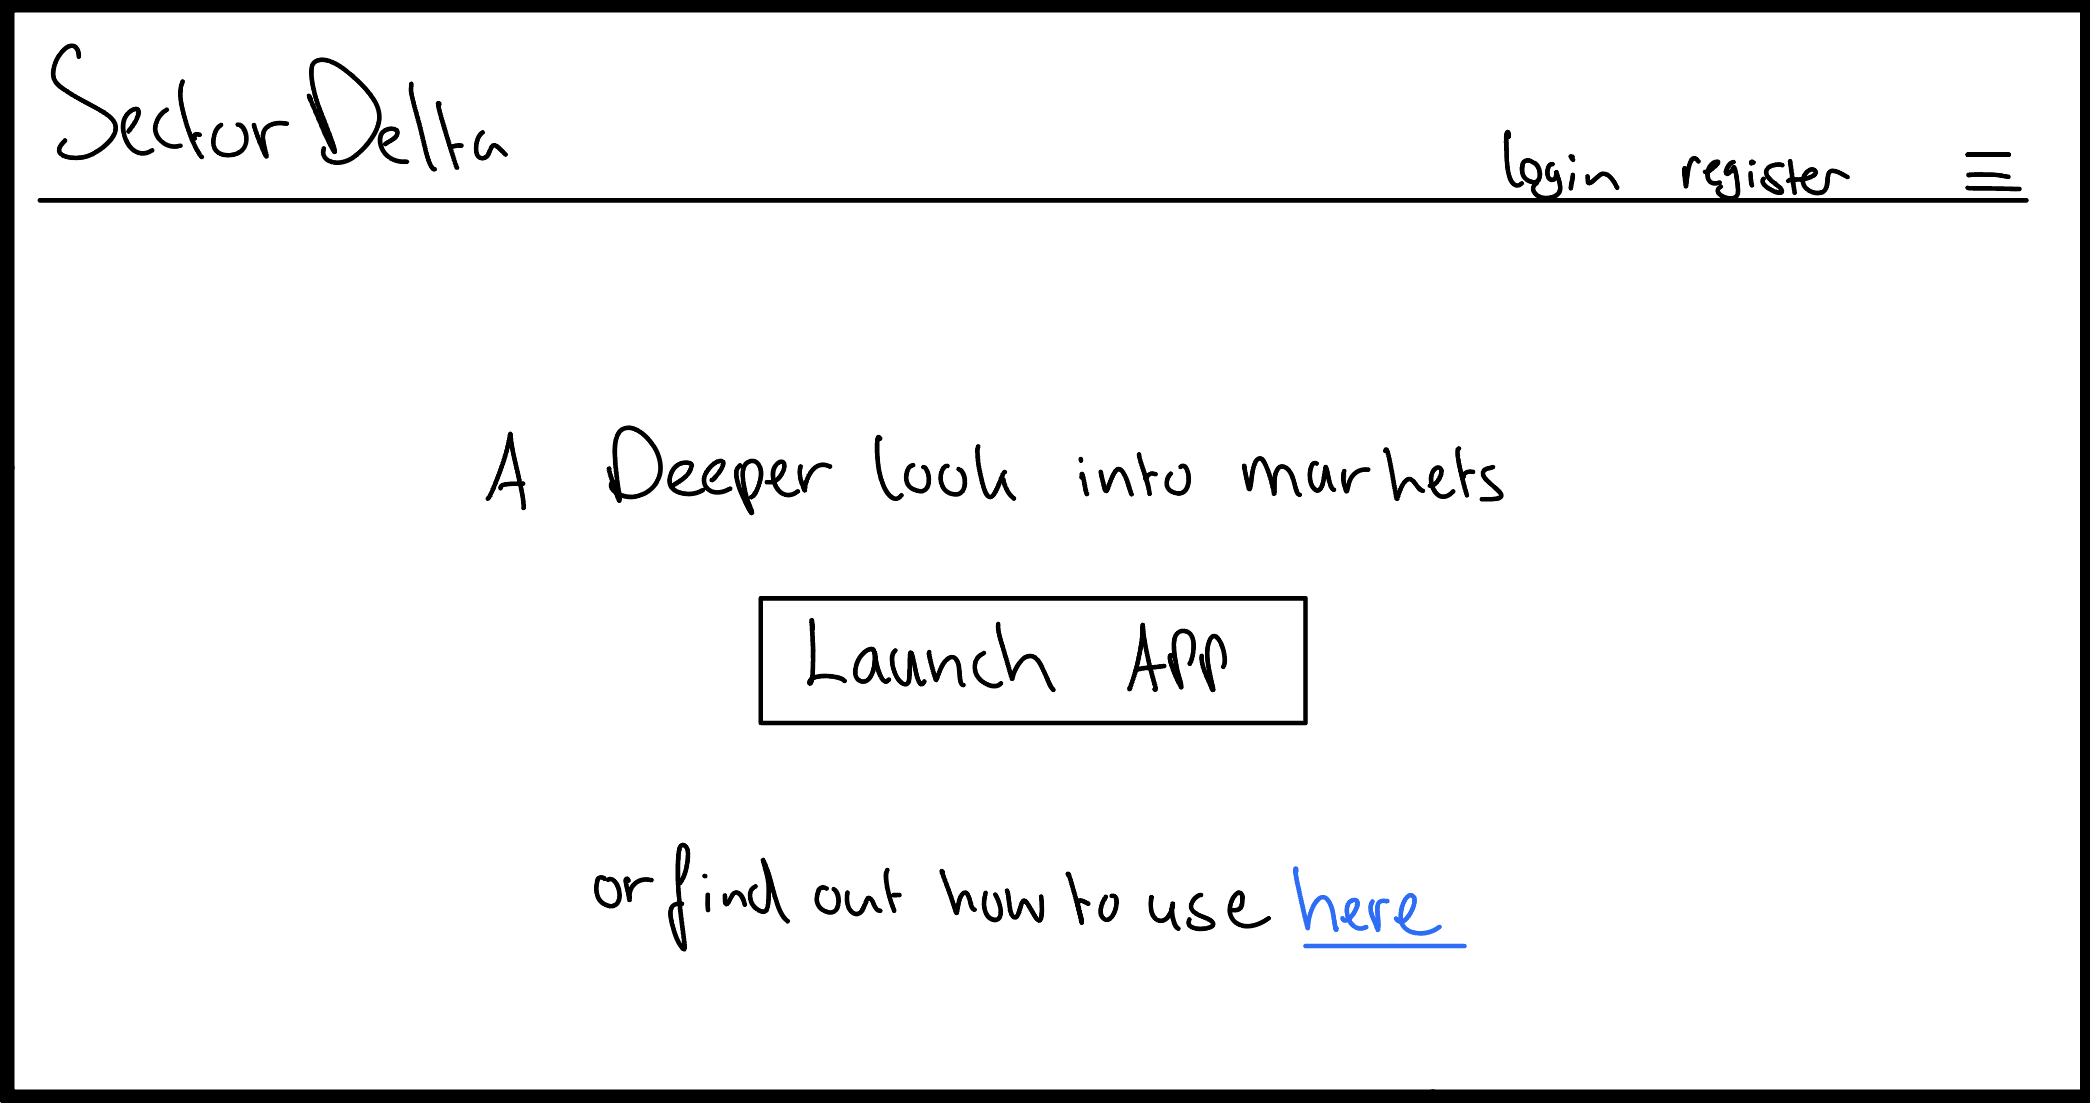 Sector Delta
login register
A Deeper look into markets
Launch App
or find out how to use here